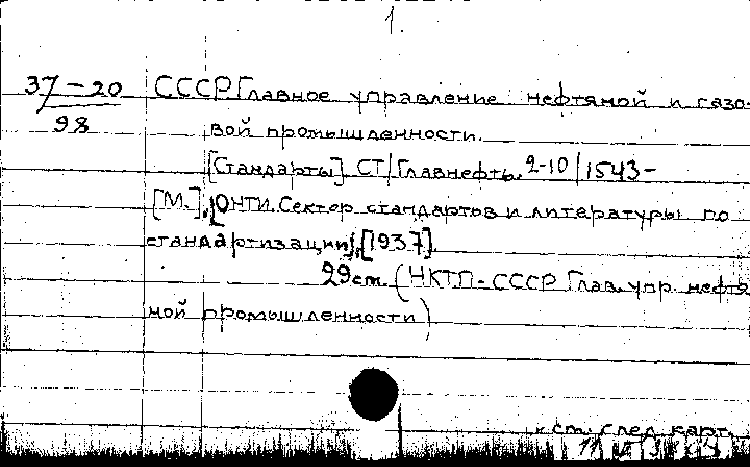 1.
37-20 СССР Главное управление нефтяной и газо-
98 вой промышленности.
[Стандарты] СТ/Главнефть 2-10/1543-
[М.], [ОНТИ. Сектор стандартов и литературы по
стандартизации], [1937].
29 ст. (НКТП-СССР Глав. упр. нефтя
ной промышленности)
к ст. след. карт.